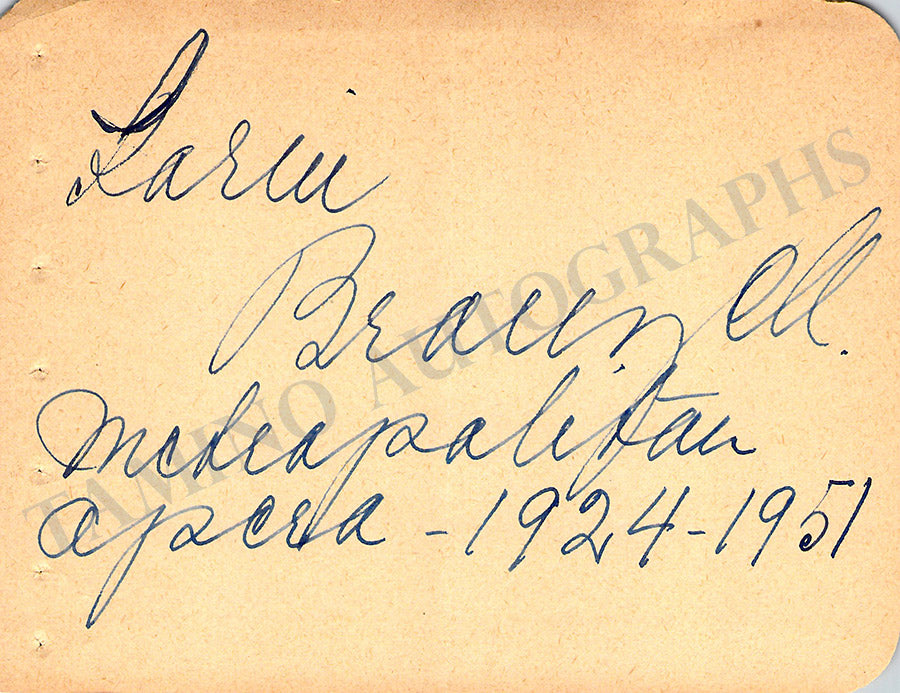 Karin
Branzell.
Metropolitan
Opera - 1924-1951
TAMINO AUTOGRAPHS